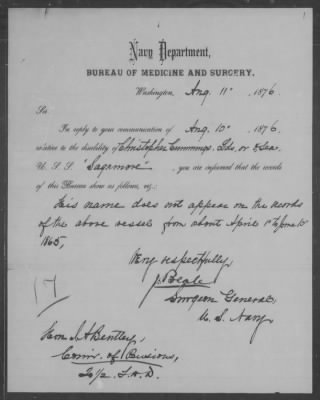 Navy Department,
BUREAU OF MEDICINE AND SURGERY,
Washington, Aug. 11", 1876
Sir
In reply to your communication of Aug. 10", 1876,
relative to the disability of Christopher Cummings, Lds. or Sea.
U. S. S. "Sagamore", you are informed that the records
of this Bureau show as follows, viz.:
His name does not appear on the records
of the above vessels from about April 1" to June 10"
1865,
Very respectfully,
J Beale
Surgeon General,
U. S. Navy
17
Hon. J. A. Bentley,
Com'r. of Pensions,